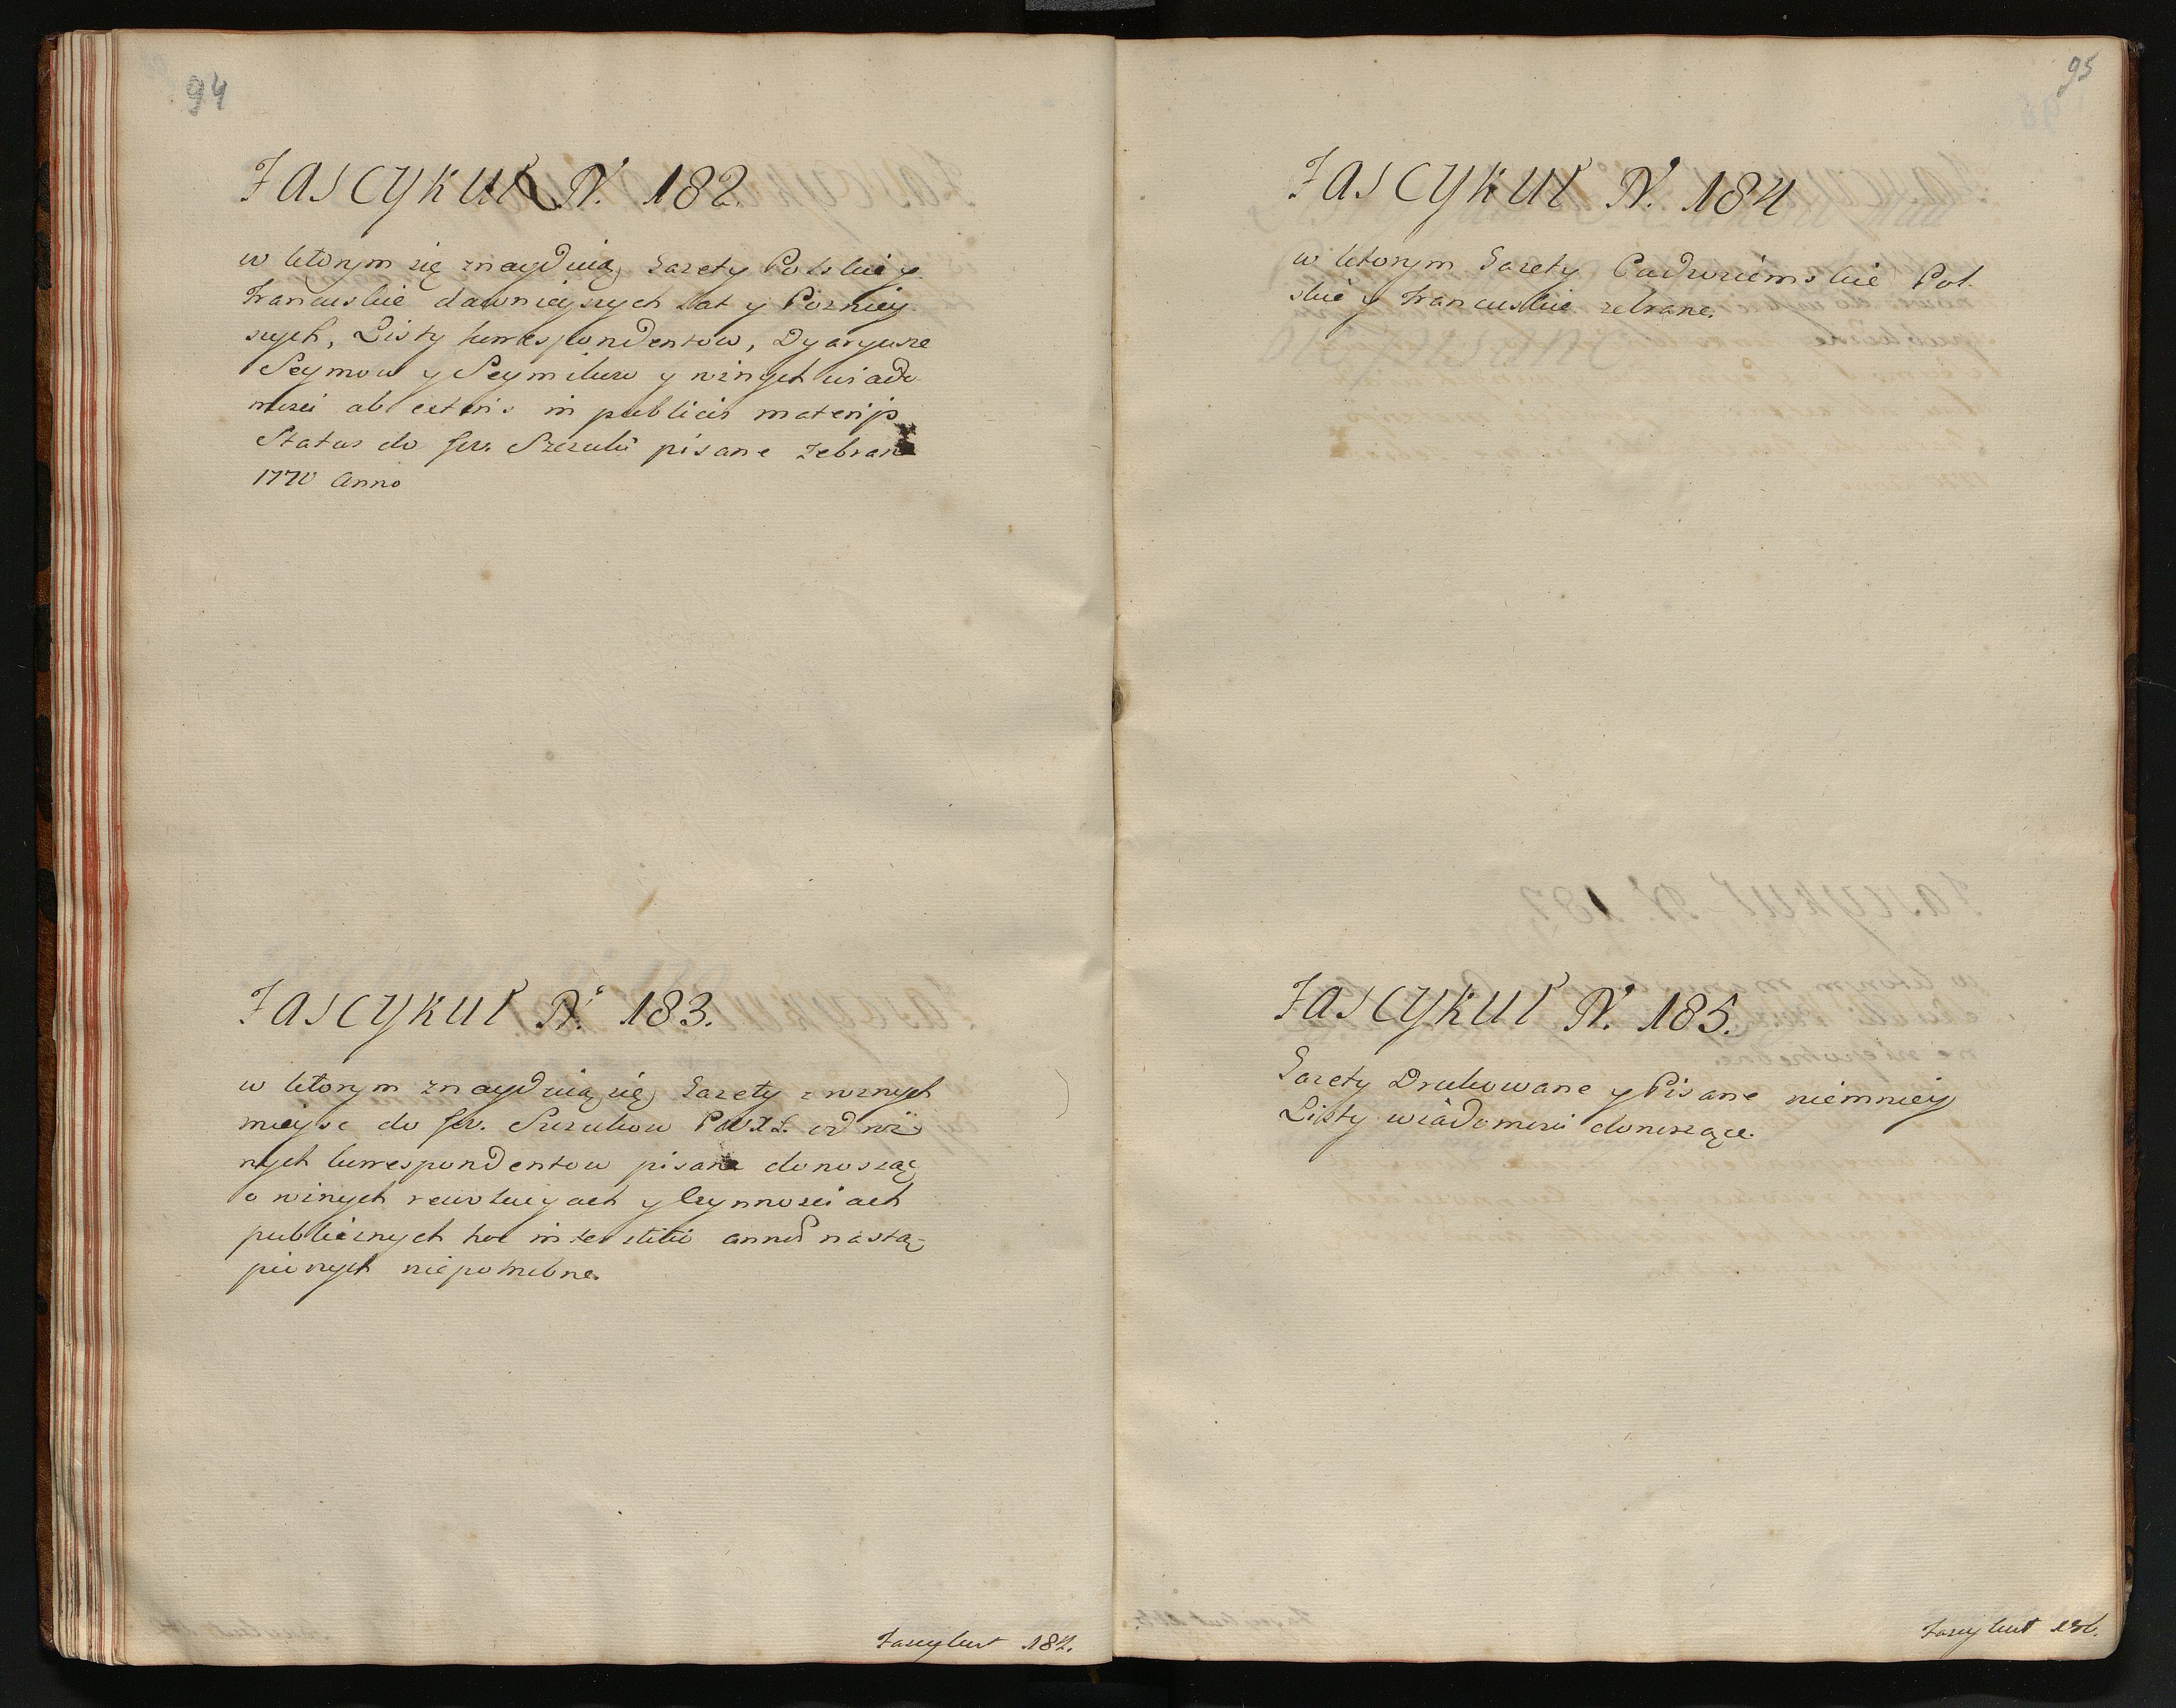 94
Fascykuł N. 182.
w ktorym się znayduią Gazety Polskie y
Francuskie dawnieyszych Lat y Pozniey
szych, Listy korrespondentow, Dyaryusze
Seymow y Seymikow y roznych wiado
mosci ab exteris in publicis materijs
Status do J. W. pisane zebrane
1770 Anno
Fascykuł N. 183.
w ktorym znayduią się Gazety z roznych
mieysc do J. W. od roz
nych korrespondentow pisane donoszące
o roznych rewolucyach y Czynnosciach
publicznych hoc interstitio annor nastą-
pionych niepotrzebne.
Fascykuł 184.
95
Fascykuł N. 184
w ktorym Gazety Cudzoziemskie Pol-
skie y Francuskie zebrane.
Fascykuł N. 185.
Gazety Drukowane y Pisane niemniey
Listy wiadomosci donoszące.
Fascykuł 186.